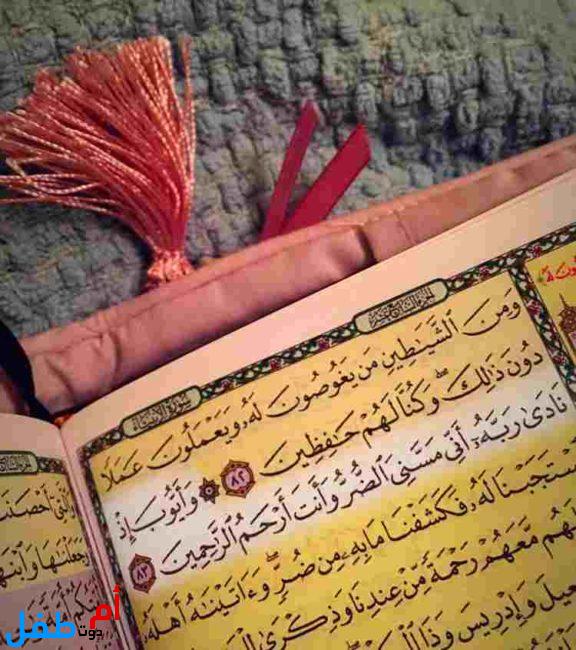 سُورَةُ الأَنبِيَاءِ
وَمِنَ ٱلشَّيَٰطِينِ مَن يَغُوصُونَ لَهُۥ وَيَعْمَلُونَ عَمَلًا
دُونَ ذَٰلِكَ ۖ وَكُنَّا لَهُمْ حَٰفِظِينَ ٨٢ ۞ وَأَيُّوبَ إِذْ
نَادَىٰ رَبَّهُۥٓ أَنِّى مَسَّنِىَ ٱلضُّرُّ وَأَنتَ أَرْحَمُ ٱلرَّٰحِمِينَ ٨٣
سْتَجَبْنَا لَهُۥ فَكَشَفْنَا مَا بِهِۦ مِن ضُرٍّ ۖ وَءَاتَيْنَٰهُ أَهْلَهُۥ
لَهُم مَّعَهُمْ رَحْمَةً مِّنْ عِندِنَا وَذِكْرَىٰ
عِيلَ وَإِدْرِيسَ وَذَا
وَٱلَّتِىٓ أَحْصَنَتْ
وَجَعَلْنَٰهَا وَٱبْنَهَا
أم دوت طفل